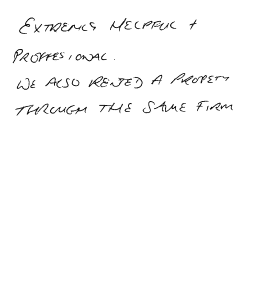 EXTREMELY HELPFUL +
PROFFESIONAL.
WE ALSO RENTED A PROPETY
THROUGH THE SAME FIRM